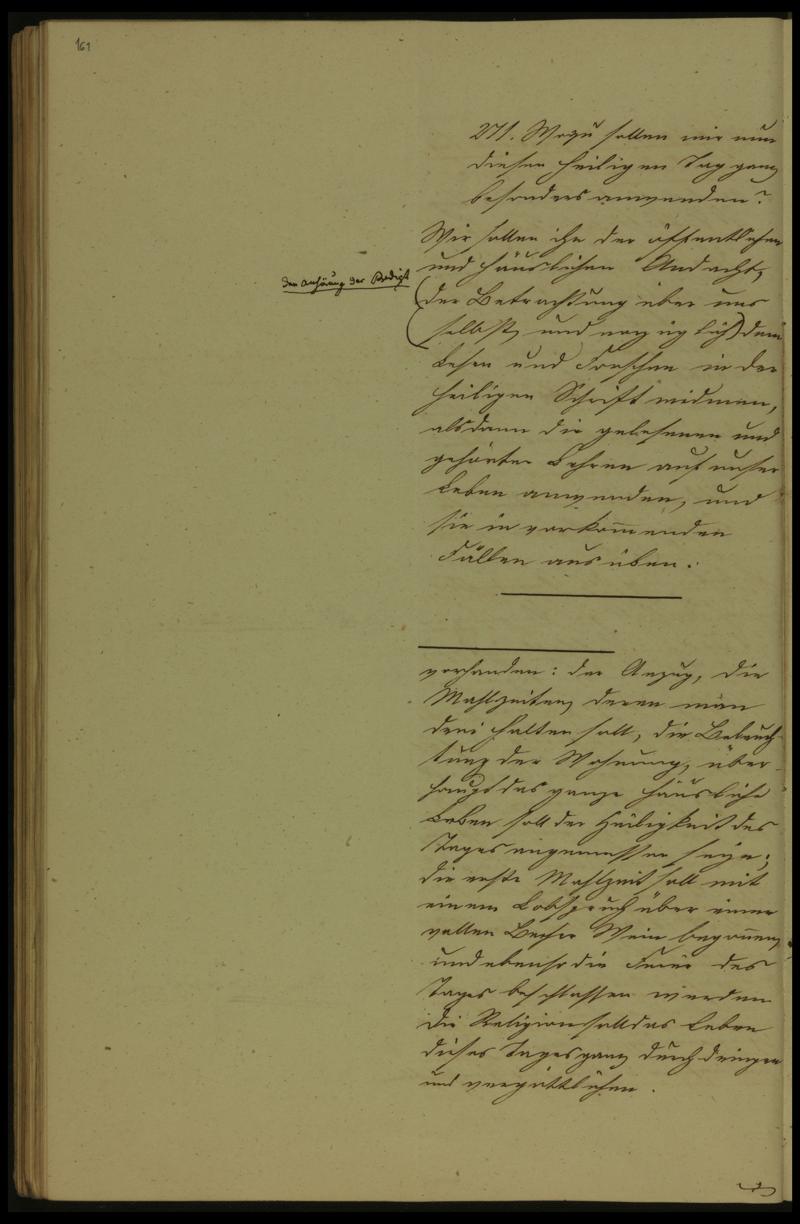 161
271. Wozu sollen wir nun
diesen heiligen Tag ganz
besonders anwenden?
Wir sollen ihn der öffentlichen
und häuslichen Andacht,
der Anhörung der Predigt
(der Betrachtung über uns
selbst, und vorzüglich) dem
Lesen und Forschen in der
heiligen Schrift widmen,
alsdann die gelesenen und
gehörten Lehren auf unser
Leben anwenden, und
sie in vorkom̄enden
Fällen ausüben.
vorhanden: der Anzug, die
Mahlzeiten, deren man
drei halten soll, die Beleuch-
tung der Wohnung, über-
haupt das ganze häusliche
Leben soll der Heiligkeit des
Tages angemessen seyn;
die erste Mahlzeit soll mit
einem Lobspruch über einen
vollen Becher Wein begon̄en,
und ebenso die Feier des
Tages beschlossen werden
Die Religion soll das Leben
dieses Tages ganz durchdringen
und vergöttlichen.